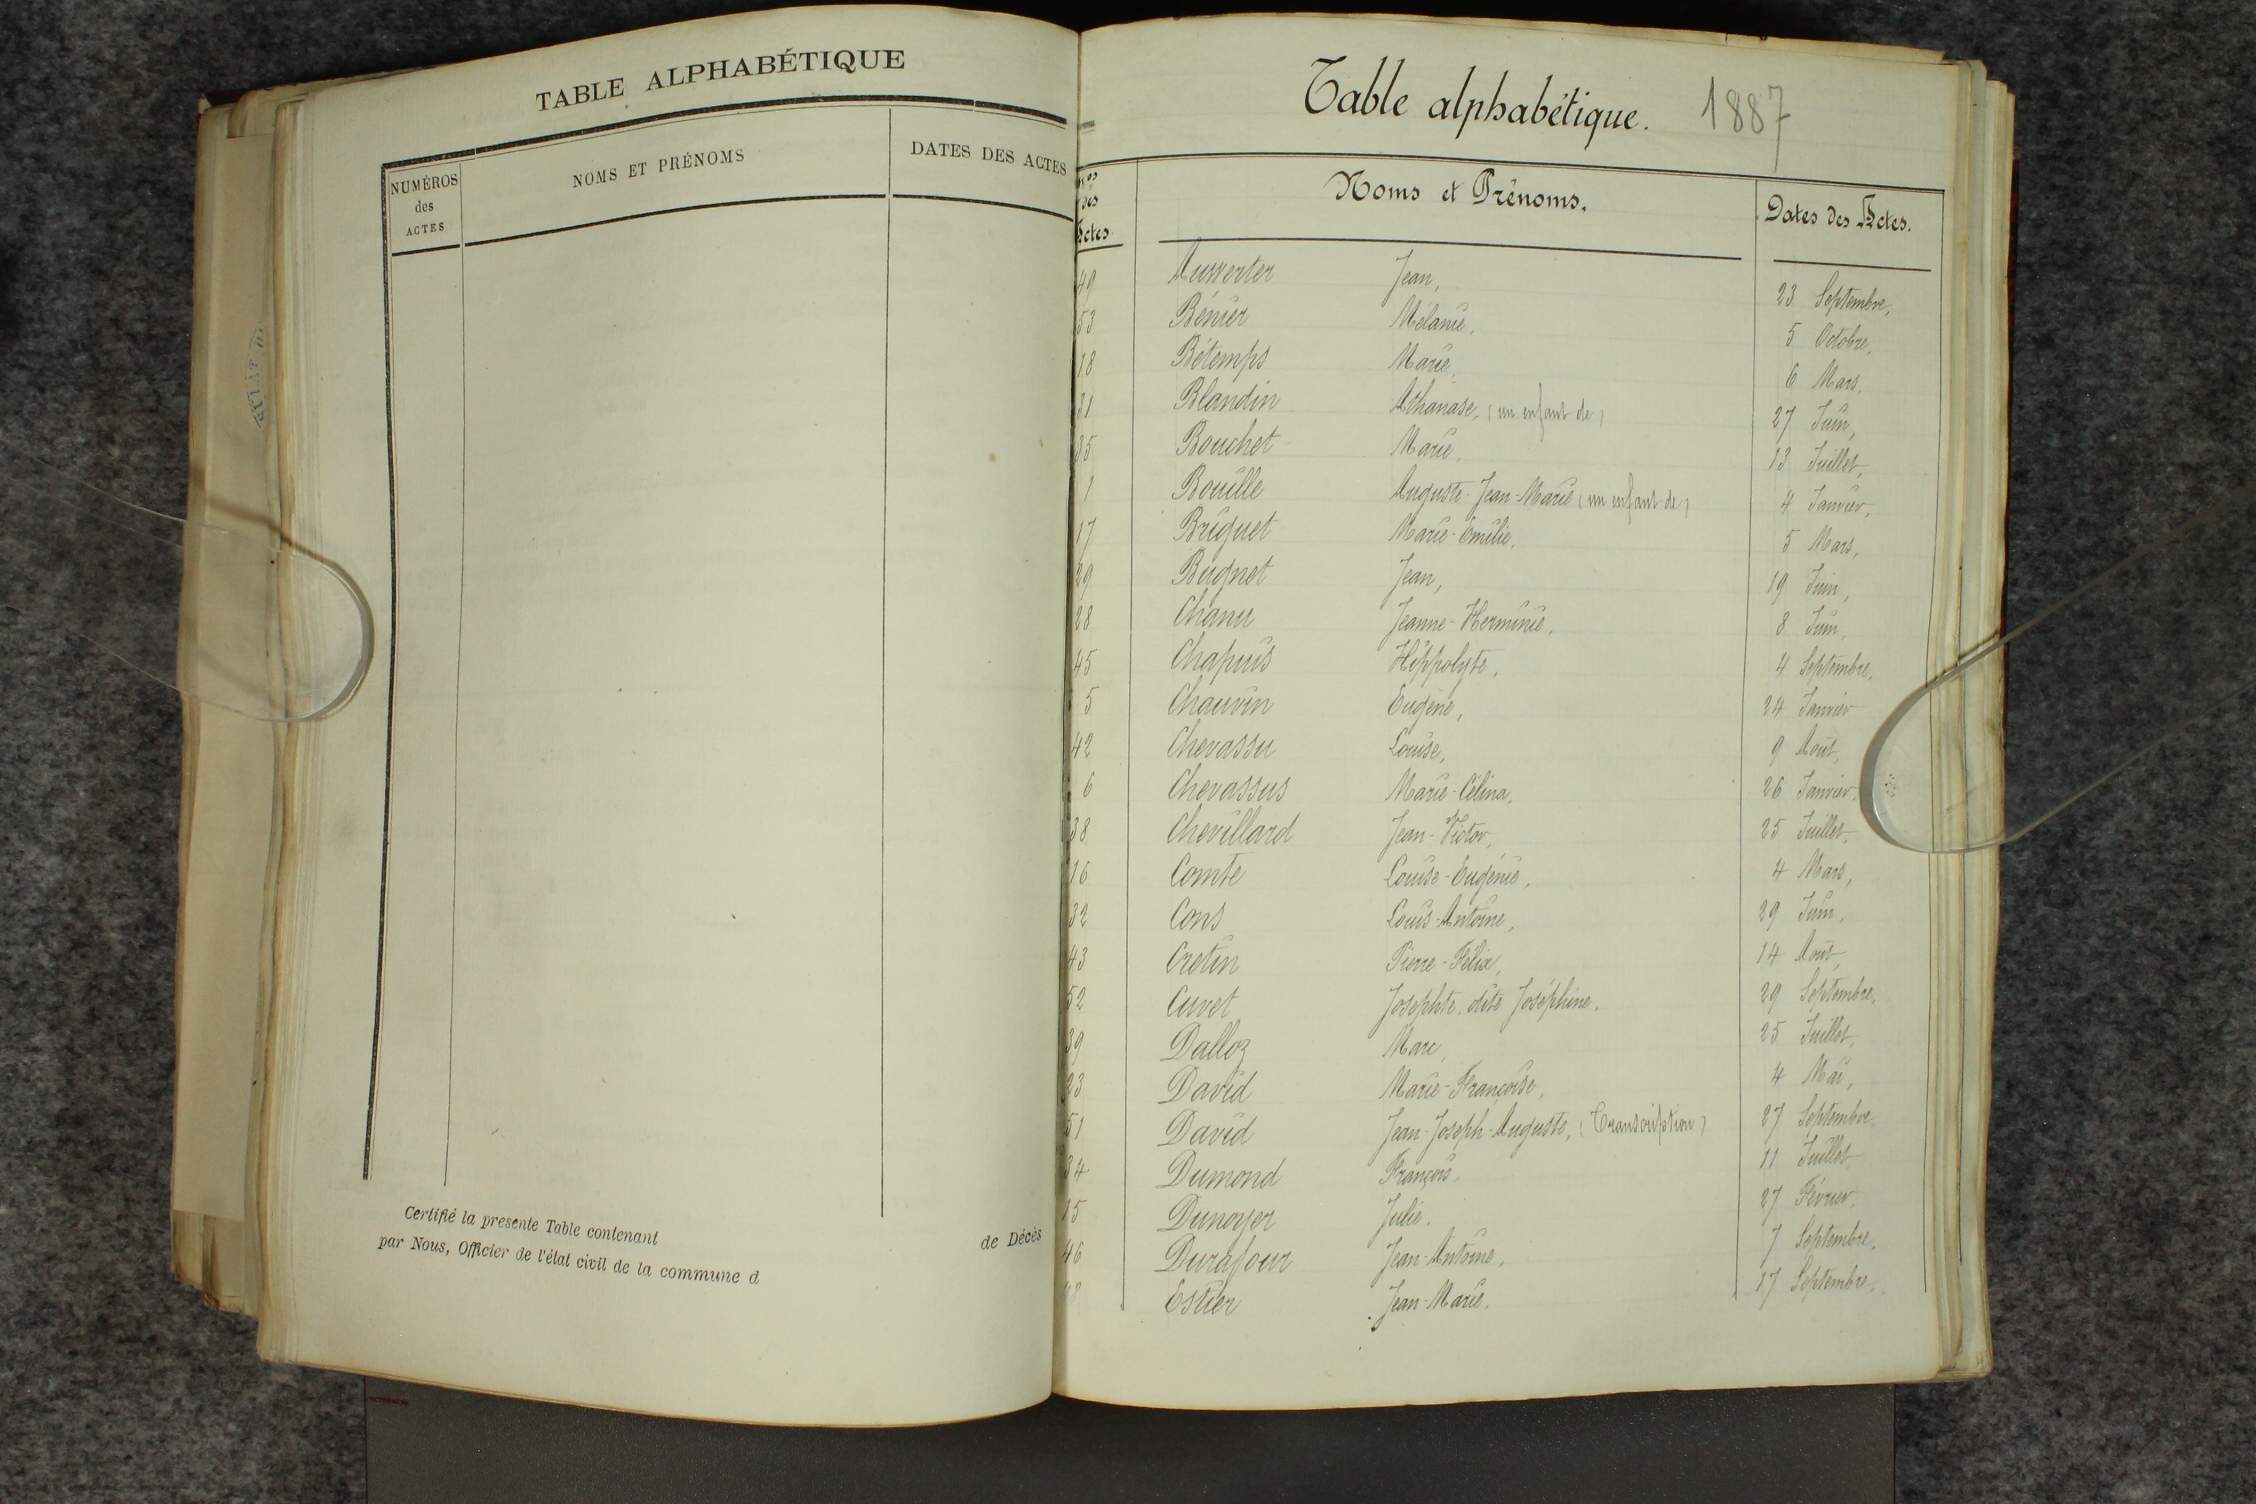 TABLE ALPHABÉTIQUE
NUMÉROS des ACTES NOMS ET PRÉNOMS DATES DES ACTES
Certifié la présente Table contenant de Décès
par Nous, Officier de l'état civil de la commune d
Table alphabétique. 1887
Nos des Actes Noms et Prénoms. Dates des Actes.
49 Jean, 23 Septembre,
53 Bénier Mélanie. 5 Octobre,
18 Bétemps Marie. 6 Mars,
31 Blandin Athanase, (un enfant de) 27 Juin,
35 Bouchet Marie. 13 Juillet,
1 Bouille Auguste-Jean-Marie (un enfant de) 4 Janvier,
17 Briguet Marie-Emilie. 5 Mars,
29 Bugnet Jean, 19 Juin,
28 Chanu Jeanne-Herminie. 8 Juin,
45 Chapuis Hippolyte, 4 Septembre,
5 Chauvin Eugène, 24 Janvier
42 Chevassu Louise, 9 Août,
6 Chevassus Marie-Célina. 26 Janvier.
38 Chevillard Jean-Victor, 25 Juillet.
16 Comte Louise-Eugénie, 4 Mars,
32 Cons Louis-Antoine, 29 Juin,
43 Cretin Pierre-Félix, 14 Août,
52 Cuvet Josephte dite Joséphine. 29 Septembre,
39 Dalloz Marc, 25 Juillet.
23 David Marie-Françoise, 4 Mai,
51 David Jean-Joseph-Auguste, (Transcription) 27 Septembre
34 Dumond François. 11 Juillet
15 Dunoyer Julie. 27 Février.
46 Durafour Jean-Antoine, 7 Septembre,
Estier Jean-Marie. 17 Septembre.